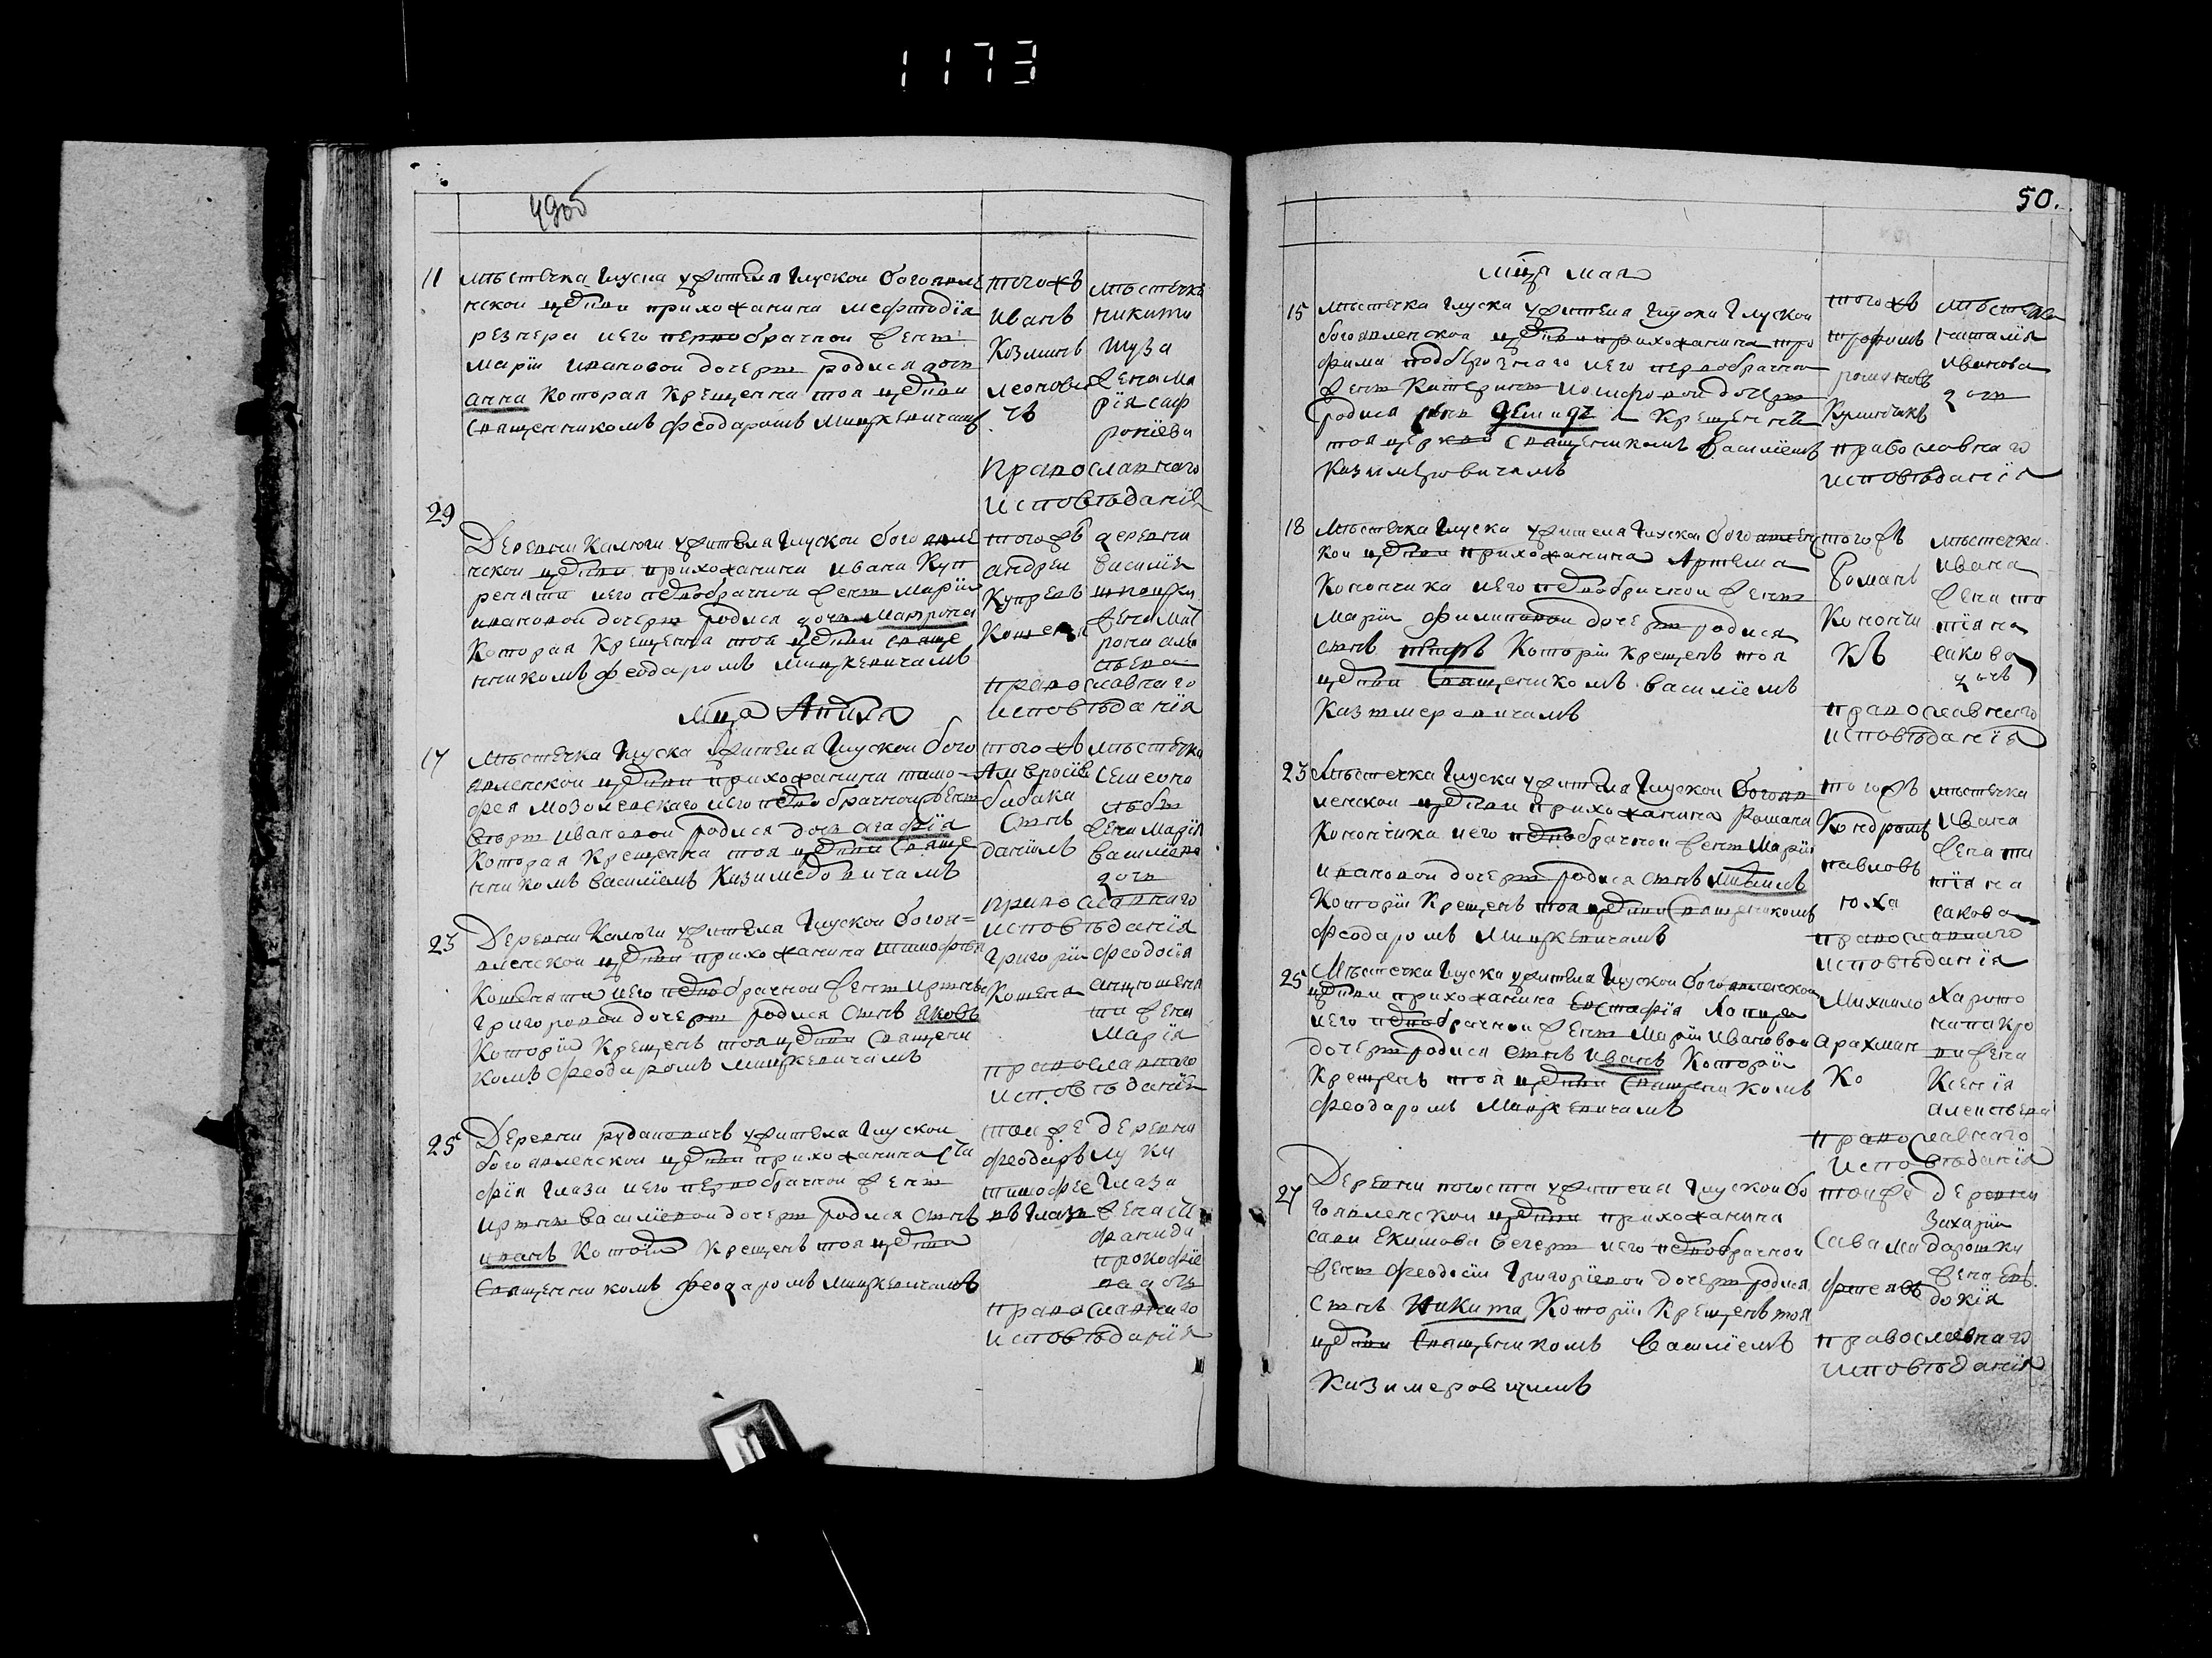 1173
49об
11
мѣстечка Глуска жителя Глуской богоявле
нской церкви прихожанина мефтодія
резнера и его первобрачной жены
маріи ивановой дочеры родися дочь
анна которая крещенна тоя церкви
священникомъ феодаромъ Мицкевичамъ
тогожъ
иванъ
Козминъ
леонови
чъ
мѣстечка
никити
шуза
жена ма
рія саф
роніева
православнаго
исповѣданія
29
Деревни Калюги жителя Глуской богоявле
нской церкви прихожанина ивана Куп
реняти и его первобрачной жены маріи
ивановой дочеры родися дочь Матрона
Которая крещенна тоя церкви свяще
нникомъ феодаромъ мицкевичамъ
тогожъ
андреи
Купреев
Кошеня
деревни
василія
жена Мат
рона але
православнаго
исповѣданія
Мца Априля
17
Мѣстечка Глуска жителя Глуской бого
явленской церкви прихожанина тимо-
фея мозолевскаго и его первобрачной жены
ивановой родися дочь агафія
Которая крещенна тоя церкви свяще
нникомъ василіемъ Казимеровичамъ
тогожъ
Амвросія
бибика
сынъ
даніилъ
мѣстечка
семена
жена Марія
василіева
дочь
православнаго
исповѣданія
23
Деревни Калюги жителя Глуской богоя=
вленской церкви прихожанина тимофея
Кошеняти и его первобрачной жены ирыны
григоровой дочеры родися сынъ яковъ
Которій крещенъ тоя церкви священи
комъ феодаромъ мицкевичамъ
григоріи
Кошеня
феодосія
анцюшеня
ти жена
марія
православнаго
исповѣданія
25
Деревни рудановичъ жителя Глуской
богоявленской церкви прихожанина ста
фія Глаза и его первобрачной жены
ирыны василіевой дочеры родися сынъ
иванъ Которій крещенъ тоя церкви
священникомъ феодаромъ мицкевичамъ
тоиже
феодаръ
тимофее
въ Глазъ
деревни
луки
Глаза
жена сте
фанида
прокофіе
ва дочь
православнаго
исповѣданія
50.
мца мая
15
мѣстечка Глуска жителя Глуска Глуской
богоявленской церкви прихожанина тро
фима подберезнаго и его первобрачной
жены Катерины иосифовой дочеры
родися сынъ демидъ крещенъ
тоя церкви священикомъ василіемъ
Казимеровичамъ
тогожъ
трофимъ
романовъ
Куминчикъ
мѣстечка
наталія
иванова
дочь
православнаго
исповѣданія
18
Мѣстечка Глуска жителя Глуской богоявленс
кой церкви прихожанина Артема
Конончика и его первобрачной жены
маріи филиповой дочеры родися
сынъ петръ Которіи крещенъ тоя
церкви священикомъ василіемъ
Казимеровичамъ
тогожъ
Романъ
Кончи
къ
мѣстечка
ивана
жена та
тіяна
сакова
дочь
православнаго
исповѣданія
23
Мѣстечка Глуска жителя Глуской богояв
ленской церкви прихожанина Романа
Конончика и его первобрачной жены Маріи
ивановой дочеры родися сынъ михаилъ
Которіи крещенъ тоя церкви священикомъ
феодаромъ Мицкевичамъ
тогожъ
Кондратъ
павловъ
юха
мѣстечка
ивана
жена та
тіяна
сакова
православнаго
исповѣданія
25
Мѣстечка Глуска жителя Глуской богоявленской
церкви прихожанина Евстафія
и его первобрачной жены Маріи ивановой
дочеры родися сынъ иванъ Которіи
крещенъ тоя церкви священикомъ
феодаромъ Мицкевичамъ
Михаило
арахман
ко
харито
жена
Ксенія
алексѣева
православнаго
исповѣданія
27
Деревни погоста жителя Глуской бо
гоявленской церкви прихожанина
савы Екимова и его первобрачной
жены феодосіи григоріевой дочеры родися
сынъ Никита Которіи крещенъ тоя
церкви священикомъ василіемъ
Казимеровичамъ
тоиже
Сава ма
деревни
захаріи
дарошки
жена Ев
докія
православнаго
исповѣданія